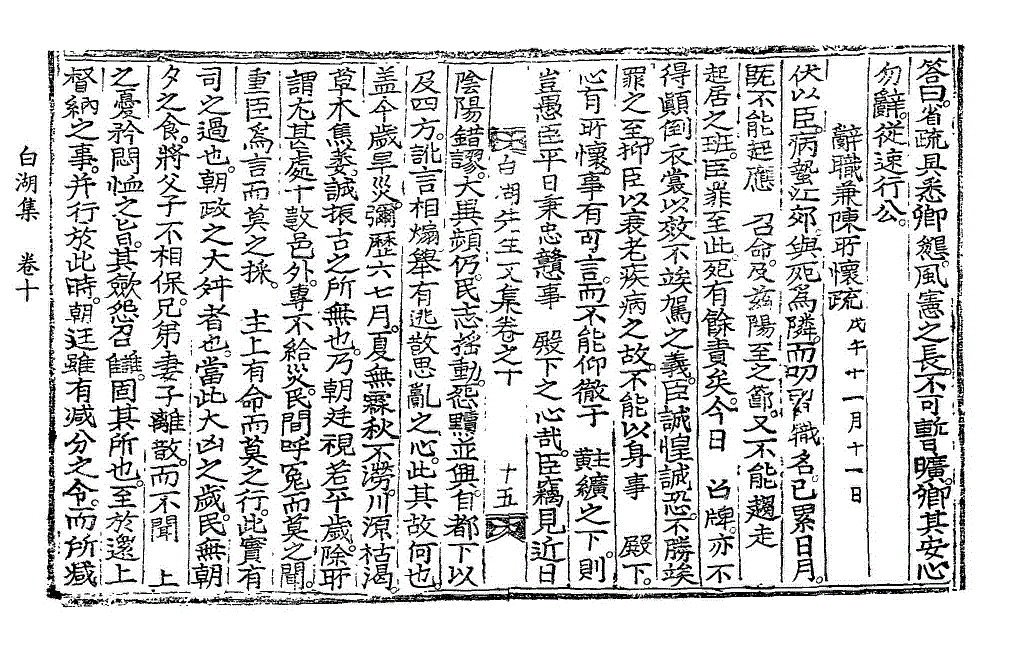 答曰。省疏具悉卿懇。風憲之長。不可暫曠。卿其安心
勿辭。從速行公。
辭職兼陳所懷疏 戊午十一月十一日
伏以臣病蟄江郊。與死爲隣。而叨冒職名。已累日月。
旣不能起應 召命。及玆陽至之節。又不能趨走
起居之班。臣罪至此。死有餘責矣。今日 召牌。亦不
得顚倒衣裳以效不竢駕之義。臣誠惶誠恐。不勝竢
罪之至。抑臣以衰老疾病之故。不能以身事 殿下。
心有所懷。事有可言。而不能仰徹于 黈纊之下。則
豈愚臣平日秉忠戇事 殿下之心哉。臣竊見近日
白湖先生文集卷之十 十五
陰陽錯謬。大異頻仍。民志搖動。怨讟並興。自都下以
及四方。訛言相煽。擧有逃散思亂之心。此其故何也。
盖今歲旱災。彌歷六七月。夏無霖秋不澇。川源枯渴。
草木焦萎。誠振古之所無也。乃朝廷視若平歲。除所
謂尤甚處十數邑外。專不給災。民間呼寃而莫之聞。
重臣爲言而莫之採。 主上有命而莫之行。此實有
司之過也。朝政之大舛者也。當此大凶之歲。民無朝
夕之食。將父子不相保。兄弟妻子離散。而不聞 上
之憂矜悶恤之旨。其斂怨召讎。固其所也。至於還上
督納之事。幷行於此時。朝廷雖有减分之令。而所减
白湖集 卷十